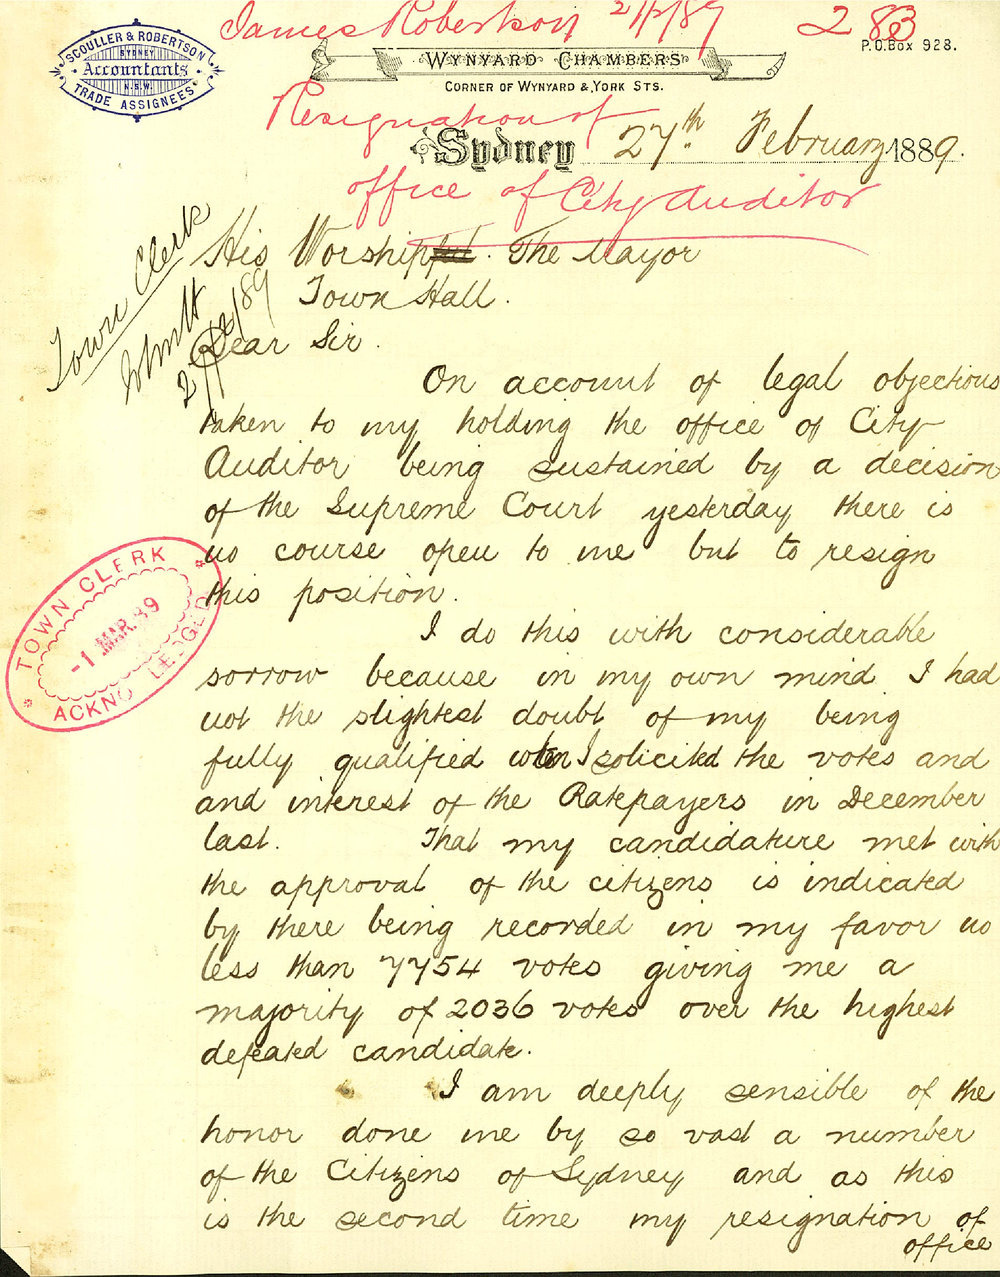 James Robertson 27/2/89
283
SCOULLER & ROBERTSON
SYDNEY
Accountants
N.S.W.
TRADE ASSIGNEES
P.O.Box 928.
WYNYARD CHAMBERS
CORNER OF WYNYARD & YORK STS.
Resignation of
Sydney 27th February 1889.
office of City Auditor
Town Clerk
27/2/89
His Worship The Mayor
Town Hall.
Dear Sir.
On account of legal objections
taken to my holding the office of City
Auditor being sustained by a decision
of the Supreme Court yesterday there is
no course open to me but to resign
this position.
TOWN CLERK
-1 MAR. 89
ACKNOWLEDGED
I do this with considerable
sorrow because in my own mind I had
not the slightest doubt of my being
fully qualified when I solicited the votes and
and interest of the Ratepayers in December
last. That my candidature met with
the approval of the citizens is indicated
by there being recorded in my favor no
less than 7754 votes giving me a
majority of 2036 votes over the highest
defeated candidate.
I am deeply sensible of the
honor done me by so vast a number
of the Citizens of Sydney and as this
is the second time my resignation of
office